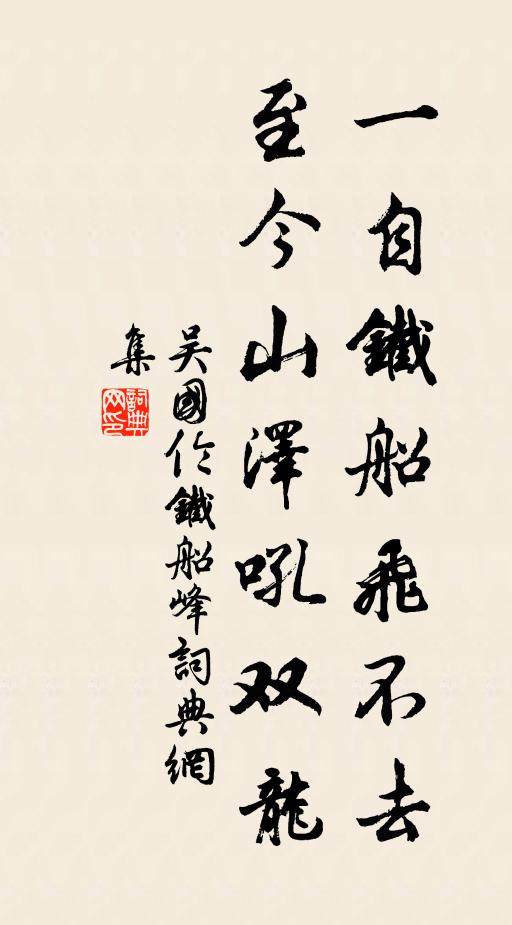 一自鐵船飛不去
至今山澤吼双龍
吳國伦鐵船峰詞典網
集
詞典
网印